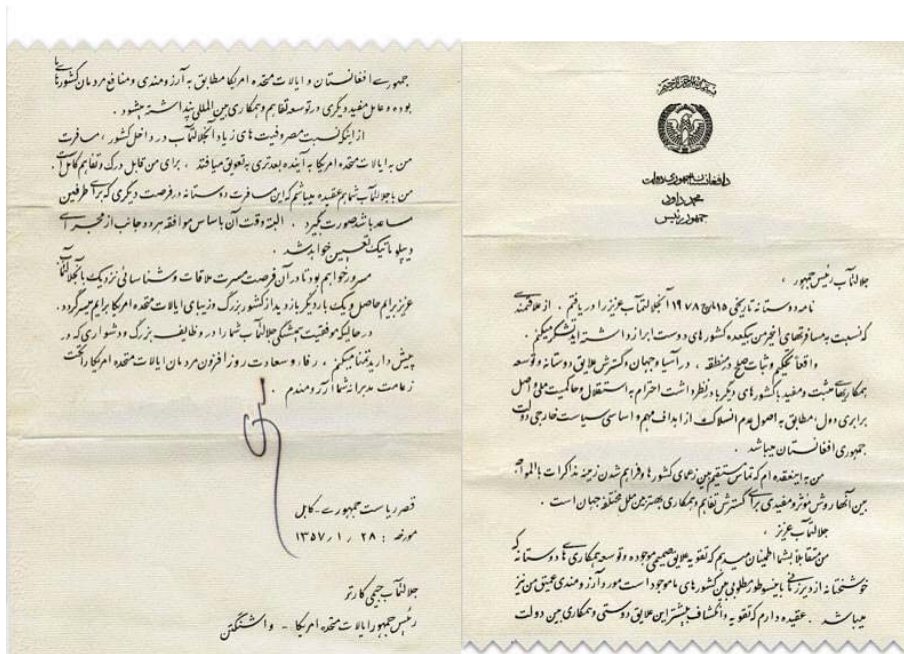 دافغانستان جمهوری دولت
محمد داود
جمهور رئیس
جلالتمآب رئیس جمهور ،
نامه دوستانه تاریخی ۱۵ مارچ ۱۹۷۸ آنجلالتمآب عزیز را دریافتم . از علاقمندی
که نسبت به مسافرتهای اخیر من بیکعده کشور های دوست ابراز داشته اید تشکر میکنم .
واقعاً تحکیم و ثبات صلح در منطقه ، در آسیا و جهان و گسترش علایق دوستانه و توسعه
همکاریهای مثبت و مفید با کشور های دیگر با در نظر داشت احترام به استقلال و حاکمیت ملی و اصل
برابری دول ، مطابق به اصول عدم انسلاک از اهداف مهم و اساسی سیاست خارجی دولت
جمهوری افغانستان میباشد .
من به اینعقیده ام که تماس مستقیم بین زعمای کشور ها و فراهم شدن زمینه مذاکرات بالمواجهه
بین آنها روش مؤثر و مفیدی برای گسترش تفاهم و همکاری بهتر بین ملل مختلف جهان است .
جلالتمآب عزیز ،
من متقابلاً بشما اطمینان میدهم که تقویه علایق صمیمی موجوده و توسعه همکاری های دوستانه که
خوشبختانه از دیر زمانی باینسو بطور مطلوبی بین کشور های ما موجود است مورد آرزومندی عمیق من نیز
میباشد . عقیده دارم که تقویه و انکشاف بیشتر این علایق دوستی و همکاری بین دولت
جمهوری افغانستان و ایالات متحده امریکا مطابق به آرزومندی و منافع مردمان کشورهای ما
بوده و عامل مفید دیگری در توسعه تفاهم و همکاری بین المللی پنداشته میشود .
از اینکه نسبت مصروفیت های زیاد آنجلالتمآب در داخل کشور ، مسافرت
من به ایالات متحده امریکا به آینده بعدتری به تعویق میافتد ، برای من قابل درک و تفاهم کامل است .
من با جلالتمآب شما هم عقیده میباشم که این مسافرت دوستانه در فرصت دیگری که برای طرفین
مساعد باشد صورت بگیرد . البته وقت آن باساس موافقه هر دو جانب از مجرای
دیپلوماتیک تعیین خواهد شد .
مسرور خواهم بود تا در آن فرصت مسرت ملاقات و شناسائی نزدیک با آنجلالتمآب
عزیز برایم حاصل و یک بار دیگر بازدید از کشور بزرگ و زیبای ایالات متحده امریکا برایم میسر گردد .
در حالیکه موفقیت همیشگی جلالتمآب شما را در وظایف بزرگ و دشواری که در
پیش دارید تمنا میکنم ، رفاه و سعادت روز افزون مردمان ایالات متحده امریکا را تحت
زعامت مدبرانه شما آرزومندم .
قصر ریاست جمهوری - کابل
مورخه : ۲۸ / ۱ / ۱۳۵۷
جلالتمآب جیمی کارتر
رئیس جمهور ایالات متحده امریکا - واشنگتن